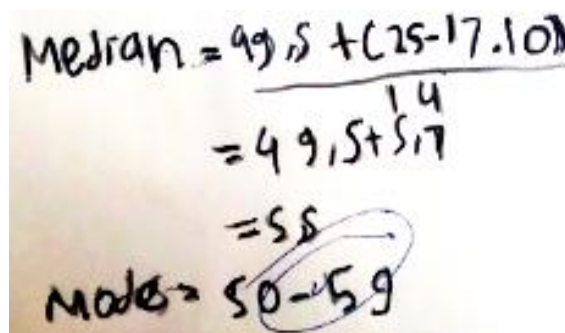 Median = 49,5 + (25-17.10)
14
= 49,5+5,7
= 55
Mode = 50-59